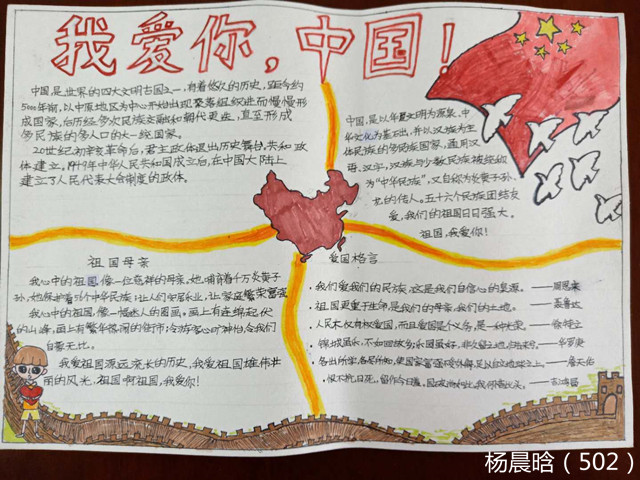 我爱你，中国！
中国，是世界的四大文明古国之一，有着悠久的历史，距今约
5000年前，以中原地区为中心开始出现聚落组织进而慢慢形
成国家，后历经多次民族交融和朝代更迭，直至形成
多民族的多人口的大一统国家。
20世纪初辛亥革命后，君主政体退出历史舞台，共和政
体建立。1949年中华人民共和国成立后，在中国大陆上
建立了人民代表大会制度的政体。
中国，是以华夏文明为源泉、中
华文化为基石出，并以汉族为主
体民族的多民族国家，通用汉
语、汉字，汉族与少数民族被统称
为“中华民族”，又自称为炎黄子孙、
龙的传人。五十六个民族团结友
爱，我们的祖国日日强大。
祖国，我爱你！
祖国母亲
我心中的祖国，像一位慈祥的母亲，她哺育着千万炎黄子
孙，她保护着56个中华民族；让人们安居乐业，让家庭繁荣富强
我心中的祖国，像一幅迷人的图画，画上有连绵起伏
的山峰，画上有繁华热闹的街市；令游客心旷神怡，令我们
自豪无比。
我爱祖国源远流长的历史，我爱祖国雄伟壮
丽的风光，祖国啊祖国，我爱你！
爱国格言
我们爱我们的民族，这是我们自信心的泉源。——周恩来
祖国更重于生命，是我们的母亲，我们的土地。——聂鲁达
人民不仅有权爱国，而且爱国是个义务，是一种光荣。——徐特立
锦城虽乐，不如回故乡；乐园虽好，非久留之地。归去来兮。——华罗庚
各出所学，各尽所知，使国家富强不受外侮，足以自立于地球之上。——詹天佑
恨不抗日死，留作今日羞。国破尚如此，我何惜此头。——吉鸿昌
杨晨晗（502）